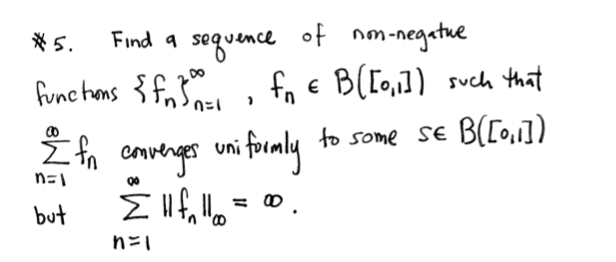 * 5. Find a sequence of non-negative
functions {fₙ}ₙ₌₁^∞ , fₙ ∈ B([0,1]) such that
∑ₙ₌₁^∞ fₙ converges uniformly to some s∈ B([0,1])
but ∑ₙ₌₁^∞ ‖fₙ‖_∞ = ∞ .